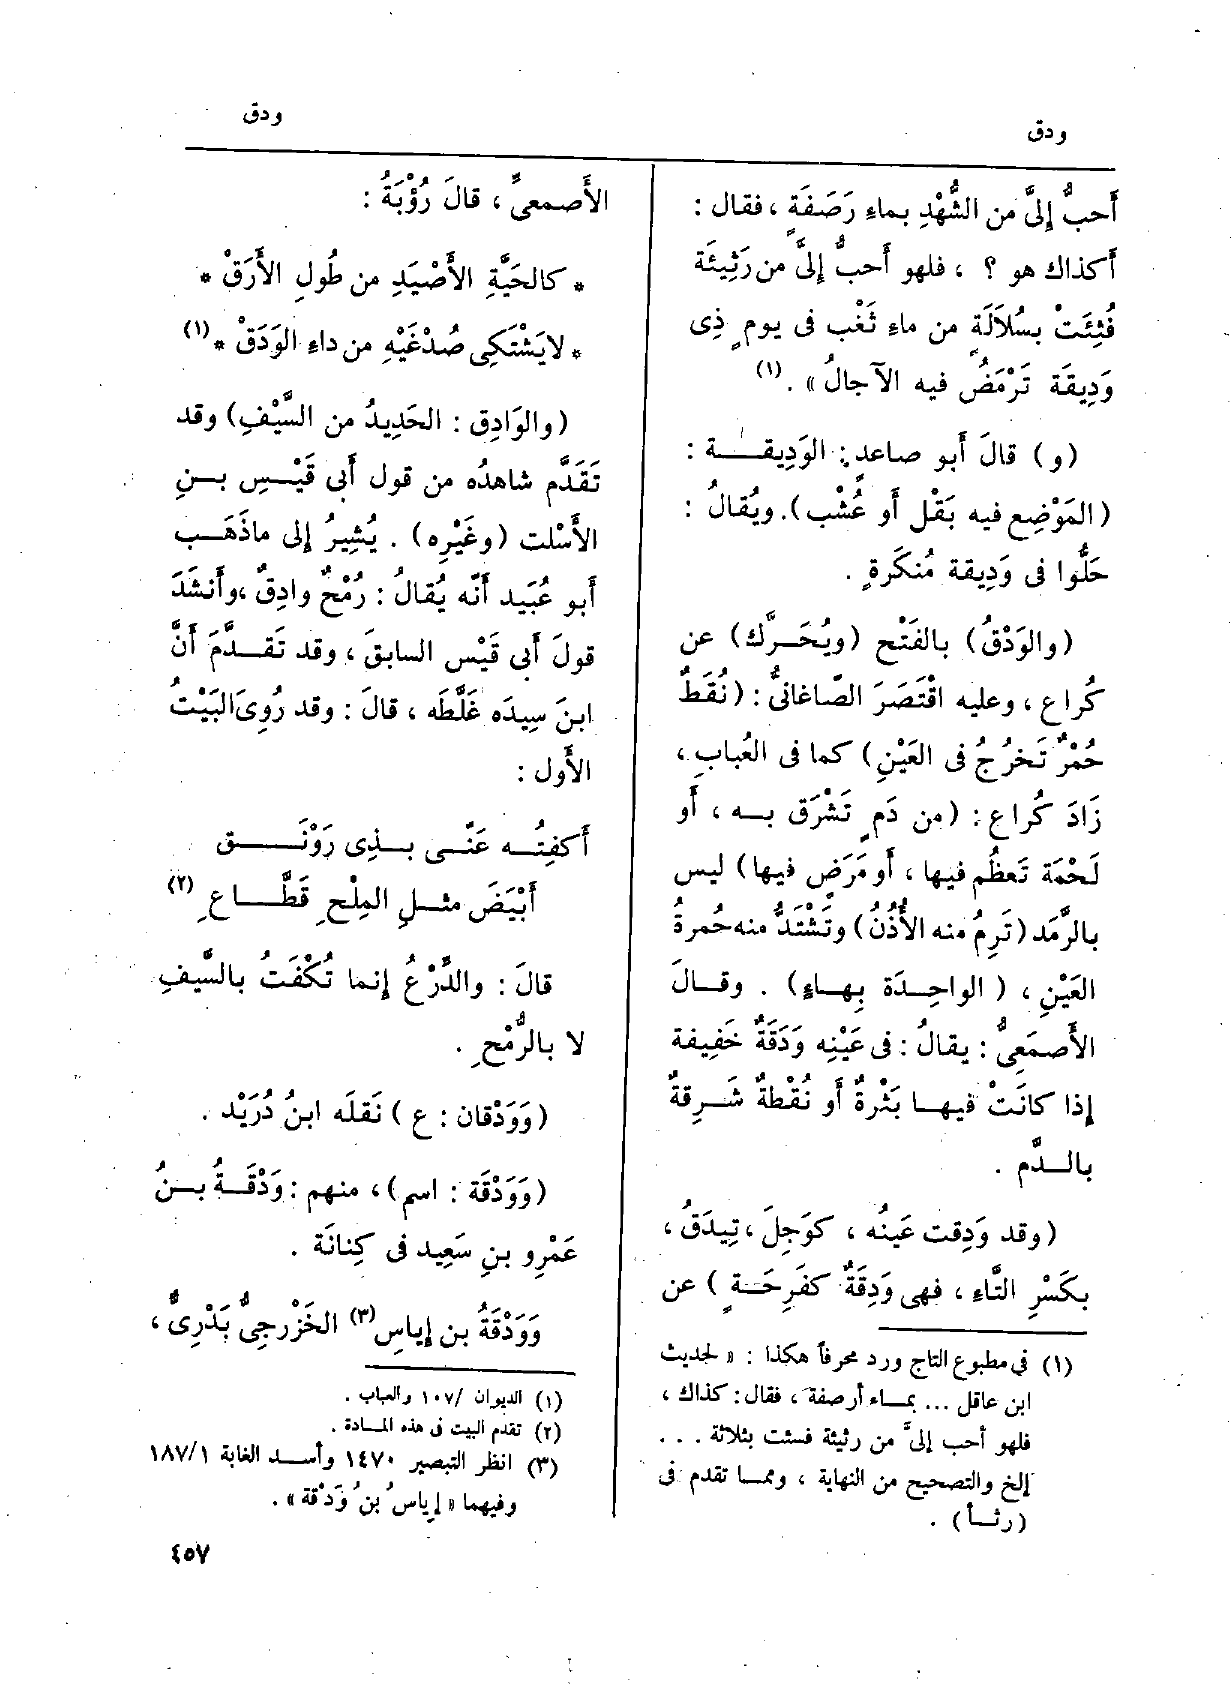 ودق
ودق
أَحبُّ إِلىَّ من الشُّهْدِ بماءِ رَصَفَةٍ ، فقال :
أَكذاك هو ؟ ، فلهو أَحبُّ إِلىَّ من رَثِيئَة
فُثِئَتْ بسُلاَلَةٍ من ماءِ ثَغْب فى يومٍ ذِى
وَدِيقَة تَرْمَضُ فيه الآجالُ » . (١)
(و) قالَ أَبو صاعدٍ : الوَدِيقــة :
(المَوْضِع فيه بَقْل أَو عُشْب) . ويُقالُ :
حَلُّوا فى وَدِيقة مُنكَرةٍ .
(والوَدْقُ) بالفَتْح (ويُحَــرَّك) عن
كُراع ، وعليه اقْتَصَرَ الصّاغانىُّ : (نُقَطٌ
حُمْرٌ تَخرُجُ فى العَيْنِ) كما فى العُبابِ ،
زَادَ كُراع : (من دَمٍ تَشْرَق بــه ، أَو
لَحْمَة تَعظُم فيها ، أَو مَرَضٍ فيها) ليس
بالرَّمَد (تَرِمُ منه الأُذُنُ) وتَشْتَدُّ منه حُمرةُ
العَيْنِ ، ( الواحِــدَة بِهــاءٍ) . وقــالَ
الأَصمَعِىُّ : يقالُ : فى عَيْنِه وَدَقَةٌ خَفِيفة
إِذا كانَتْ فيهــا بَثْرةٌ أَو نُقْطةٌ شَــرِقةٌ
بالــدَّم .
(وقد وَدِقت عَينُه ، كوَجِلَ ، تِيدَقُ ،
بكَسْرِ التَّاءِ ، فهى وَدِقَةٌ كفَرِحَــةٍ ) عن
(١) في مطبوع التاج ورد محرفاً هكذا : « لحديث
ابن عاقل ... بمــاء أرصفة ، فقال : كذاك ،
فلهو أحب إلىَّ من رثيئة فسئت بثلاثة . . .
إلخ والتصحيح من النهاية ، وممــا تقدم فى
(رثــأ) .
الأَصمعىِّ ، قالَ رُؤْبَةُ :
* كالحَيَّةِ الأَصْيَدِ من طُولِ الأَرَقْ *
* لايَشْتَكِى صُدْغَيْهِ من داءِ الوَدَقْ * (١)
(والوَادِق : الحَدِيدُ من السَّيْفِ) وقد
تَقَدَّم شاهدُه من قول أَبى قَيْــسِ بــنِ
الأَسْلت (وغَيْرِه) . يُشِيرُ إِلى ماذَهَــب
أَبو عُبَيد أَنَّه يُقالُ : رُمْحٌ وادِقٌ ، وأَنشَدَ
قولَ أَبى قَيْس السابقَ ، وقد تَقــدَّمَ أَنَّ
ابنَ سِيدَه غَلَّطَه ، قالَ : وقد رُوِىَ البَيْتُ
الأَول :
أَكفِتُــه عَنِّــى بــذِى رَوْنَــــق
أَبْيَضَ مثــلِ المِلْحِ قَطَّــاعِ (٢)
قالَ : والدِّرْعُ إِنما تُكْفَتُ بالسَّيفِ
لا بالرُّمْحِ .
(وَوَدْقان : ع ) نَقلَه ابنُ دُرَيْد .
(وَوَدْقَة : اسم) ، منهم : وَدْقَــةُ بــنُ
عَمْرِو بنِ سَعِيد فى كِنانَة .
وَوَدْقَةُ بن إِياسٍ (٣) الخَزْرجِىُّ بَدْرِىٌّ ،
(١) الديوان /١٠٧ والعباب .
(٢) تقدم البيت فى هذه المــادة .
(٣) انظر التبصير ١٤٧٠ وأســد الغابة ١٨٧/١
وفيهما « إياسُ بنُ وَدْقة » .
٤٥٧